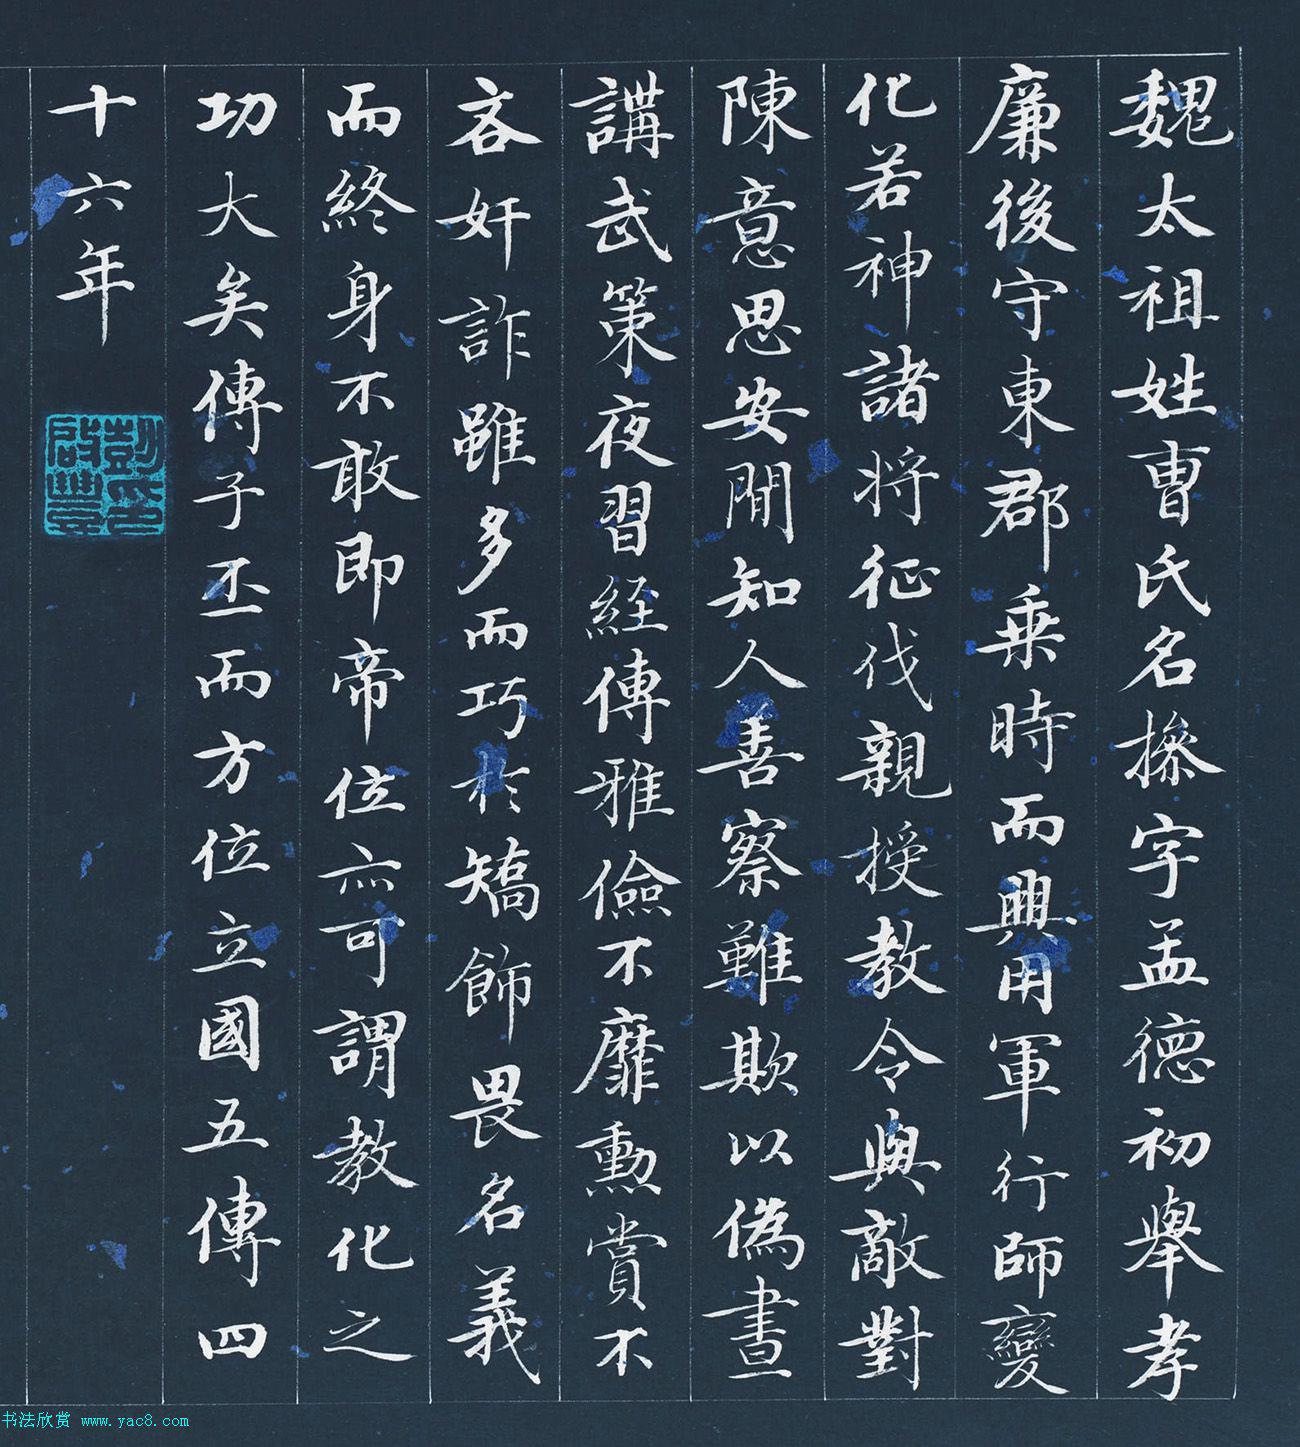 魏太祖姓曺氏名操字孟德初舉孝
廉後守東郡乗時而興用軍行師變
化若神諸将征伐親授教令與敵對
陳意思安閒知人善察難欺以偽晝
講武策夜習経傳雅儉不靡勲賞不
吝奸詐雖多而巧於矯飾畏名義
而終身不敢即帝位亦可謂教化之
功大矣傳子丕而方位立國五傳四
十六年
彭氏
啟豐
书法欣赏 www.yac8.com